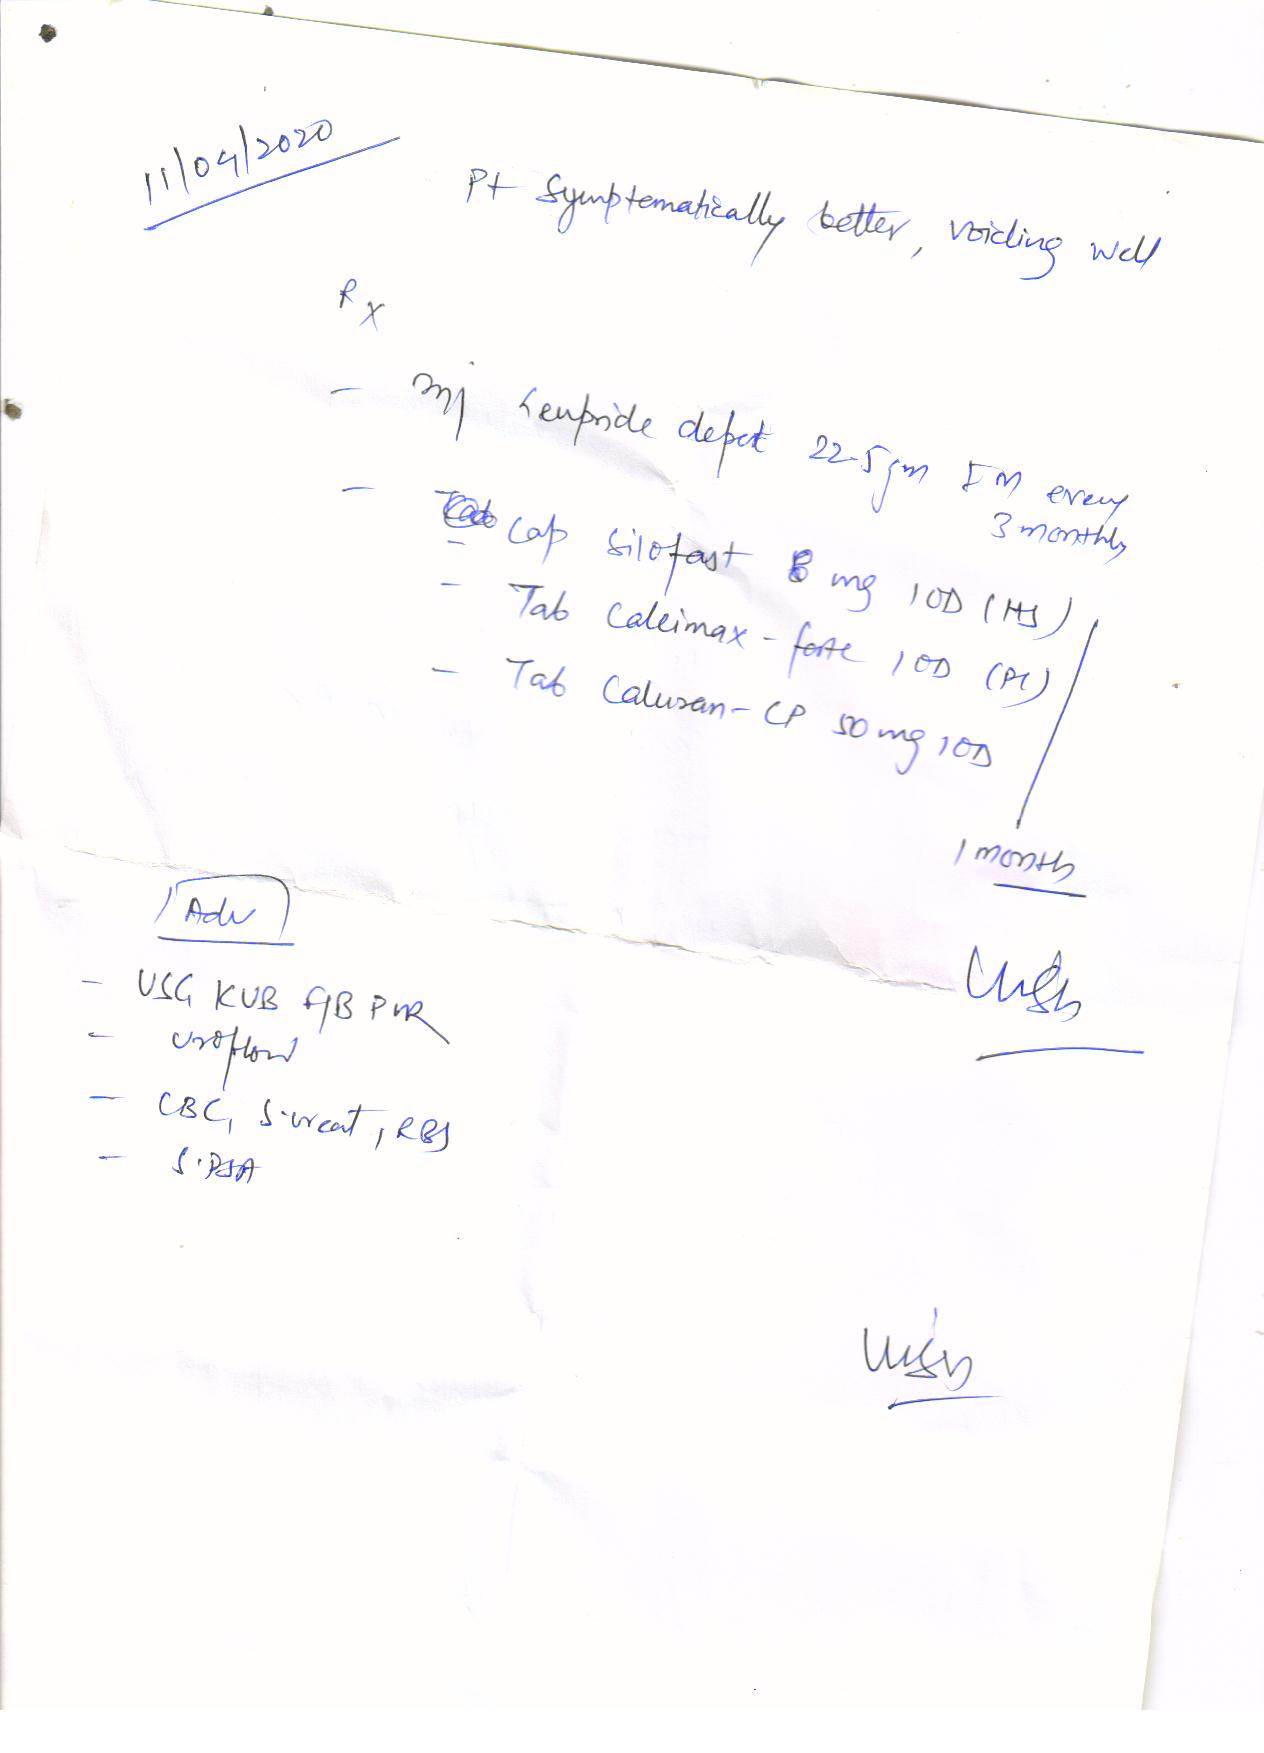 11/04/2020
Pt Symptematically better, voiding well
Rx
- Inj Leupride depot 22.5gm IM every
3 monthly
- Cap Silofast 8 mg 1OD (HS)
- Tab Calcimax - forte 1OD (PC)
- Tab Caluran - CP 50 mg 1OD
1 month
Adv
- USG KUB f/B PVR
- uroflow
- CBC, S.creat, RBS
- S.PSA